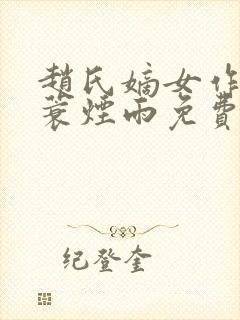 趙氏嫡女作
蓑煙雨免費
纪登奎